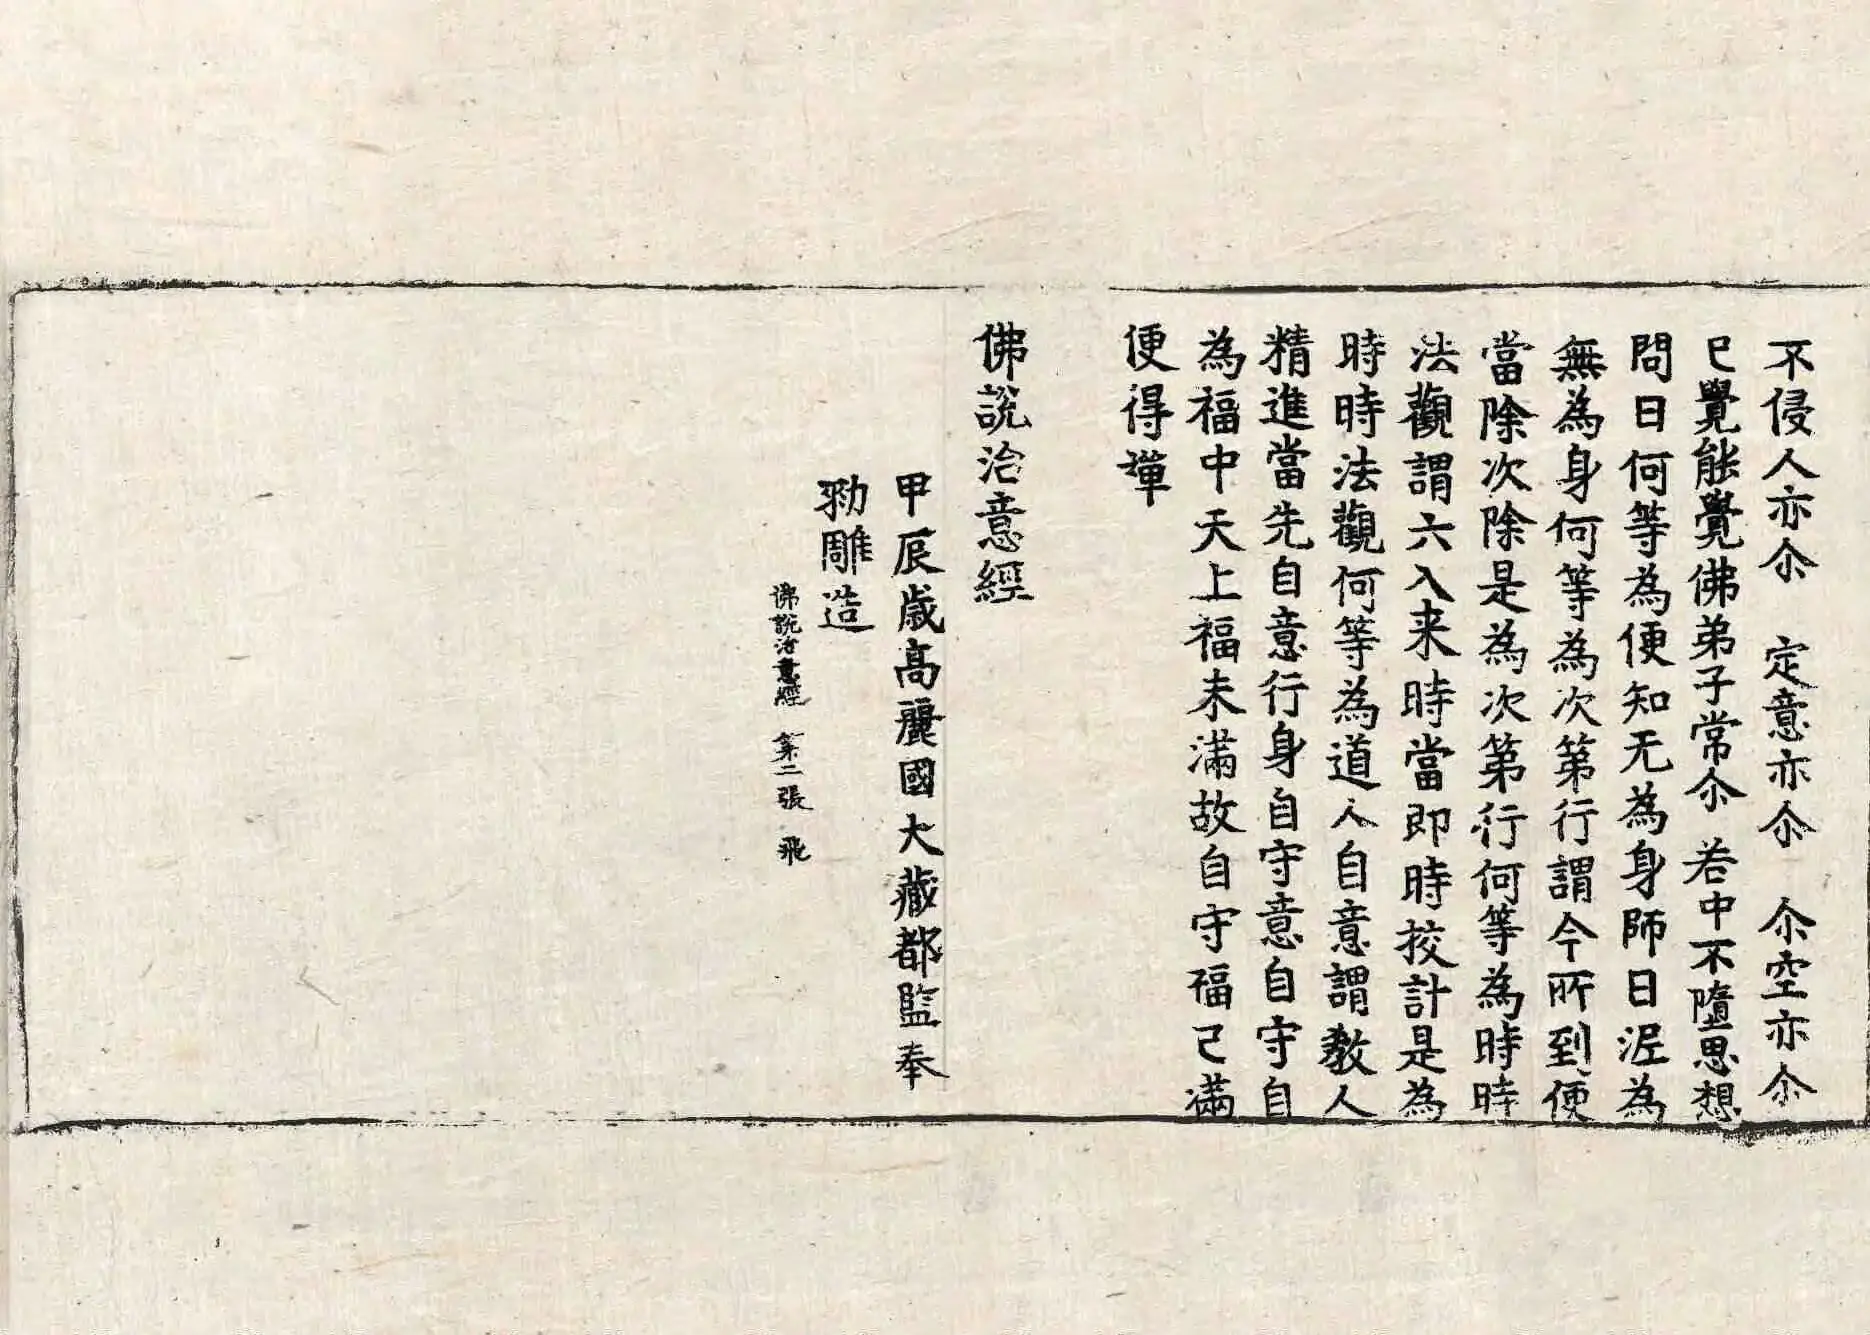 不侵人亦尒　定意亦尒　尒空亦尒
已覺能覺佛弟子常尒　若中不墮思想
問曰何等為便知无為身師曰泥為
無為身何等為次第行謂今所到便
當除次除是為次第行何等為時時
法觀謂六入来時當即時挍計是為
時時法觀何等為道人自意謂教人
精進當先自意行身自守意自守自
為福中天上福未滿故自守福已滿
便得禪
佛說治意經
甲辰歲高麗國大藏都監奉
勑雕造
佛說治意經　第二張　飛